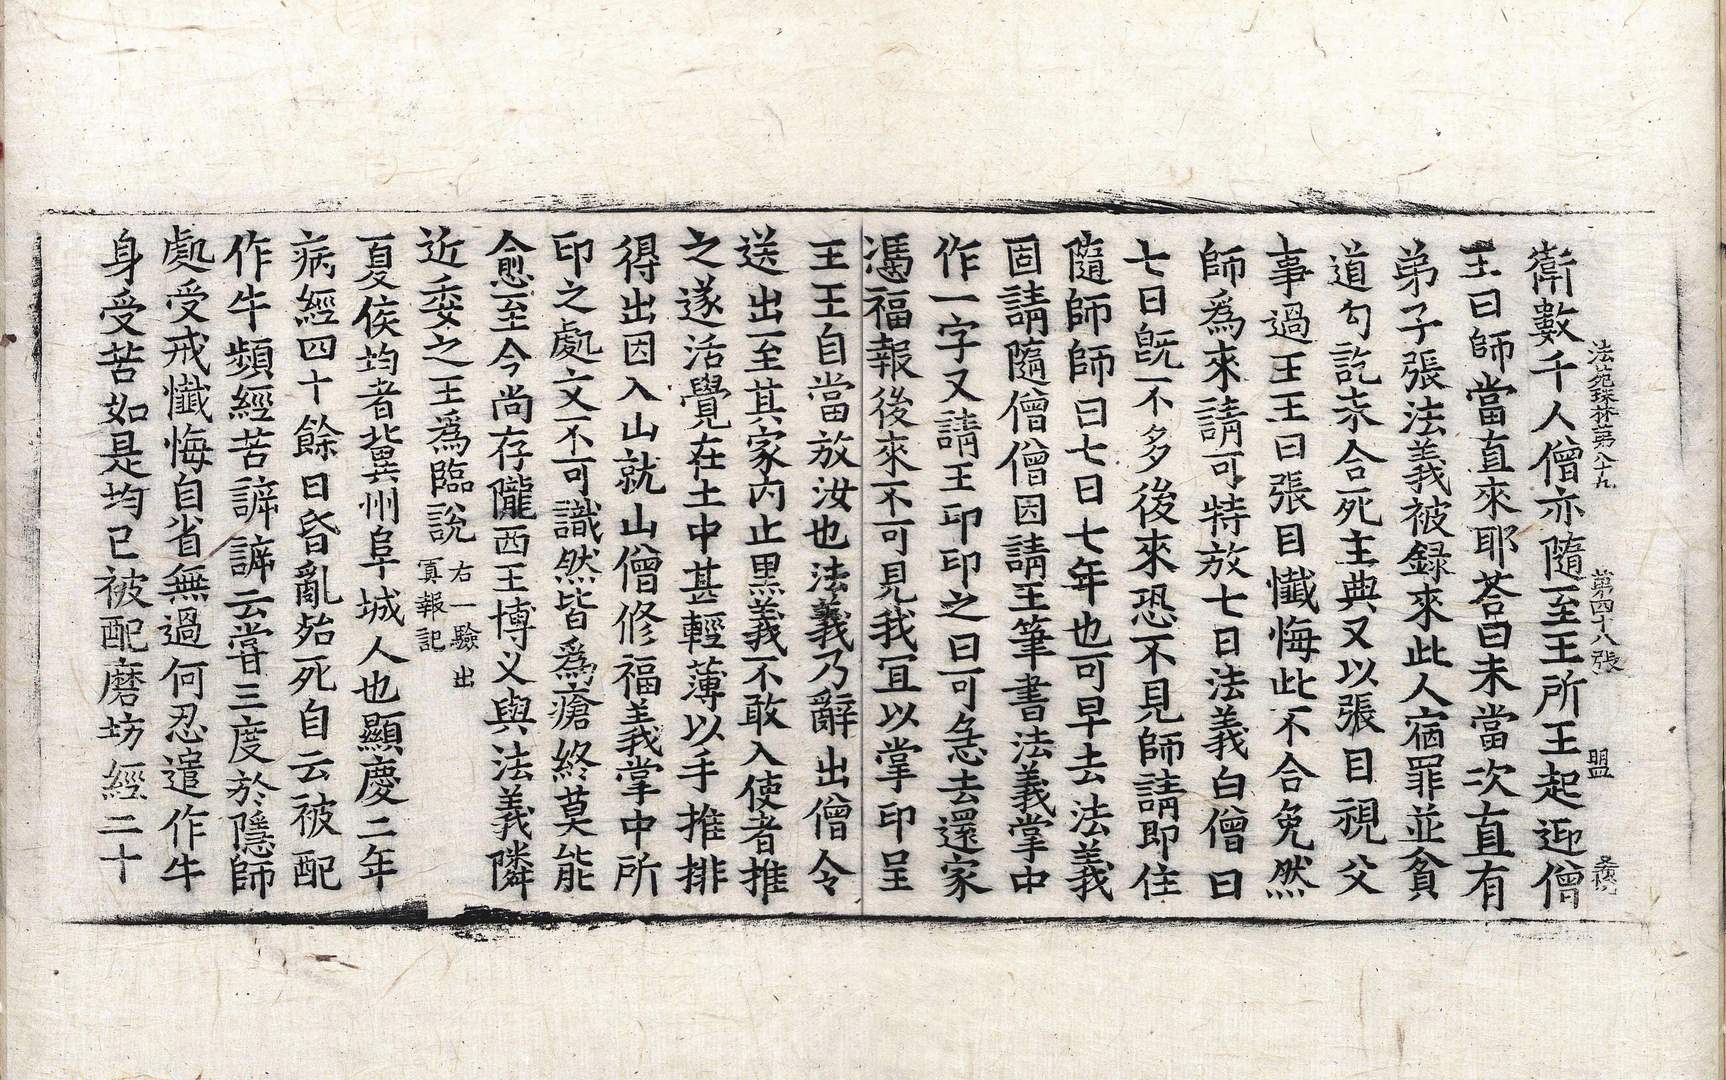 法苑珠林第八十九 第四十八張 盟
衛數千人僧亦隨至王所王起迎僧
王曰師當直來耶荅曰未當次直有
弟子張法義被録來此人宿罪並貧
道勾訖未合死主典又以張目視父
事過王王曰張目懺悔此不合免然
師爲來請可特放七日法義白僧曰
七日旣不多後來恐不見師請即住
隨師師曰七日七年也可早去法義
固請隨僧僧因請王筆書法義掌中
作一字又請王印印之曰可急去還家
憑福報後來不可見我冝以掌印呈
王王自當放汝也法義乃辭出僧令
送出至其家内止黒義不敢入使者推
之遂活覺在土中甚輕薄以手推排
得出因入山就山僧修福義掌中所
印之處文不可識然皆爲瘡終莫能
愈至今尚存隴西王博乂與法義隣
近委之王爲臨説右一驗出冥報記
夏侯均者兾州阜城人也顯慶二年
病經四十餘日昏亂殆死自云被配
作牛頻經苦訴訴云嘗三度於隱師
處受戒懺悔自省無過何忍遣作牛
身受苦如是均已被配磨坊經二十